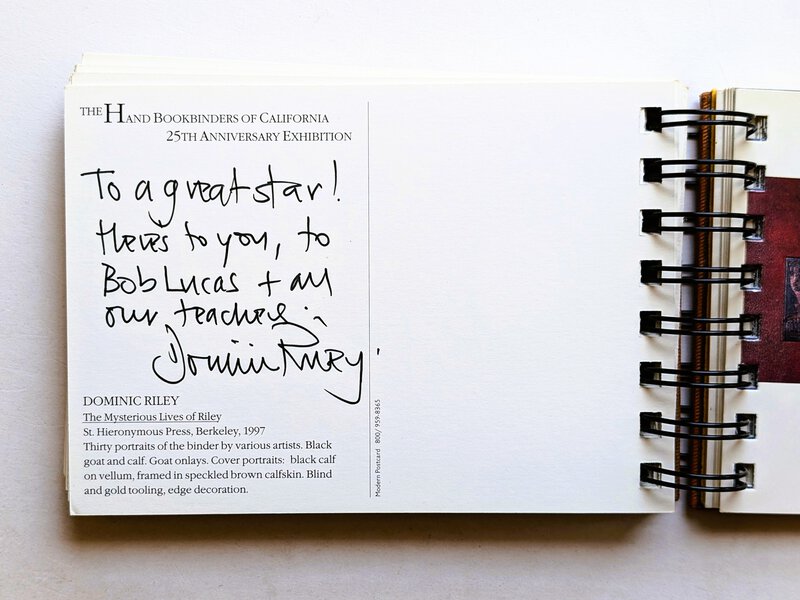 THE HAND BOOKBINDERS OF CALIFORNIA
25TH ANNIVERSARY EXHIBITION
To a great star!
Here's to you, to
Bob Lucas + all
our teachers.
Dominic Riley.
DOMINIC RILEY
The Mysterious Lives of Riley
St. Hieronymous Press, Berkeley, 1997
Thirty portraits of the binder by various artists. Black
goat and calf. Goat onlays. Cover portraits: black calf
on vellum, framed in speckled brown calfskin. Blind
and gold tooling, edge decoration.
Modern Postcard 800/959-8365